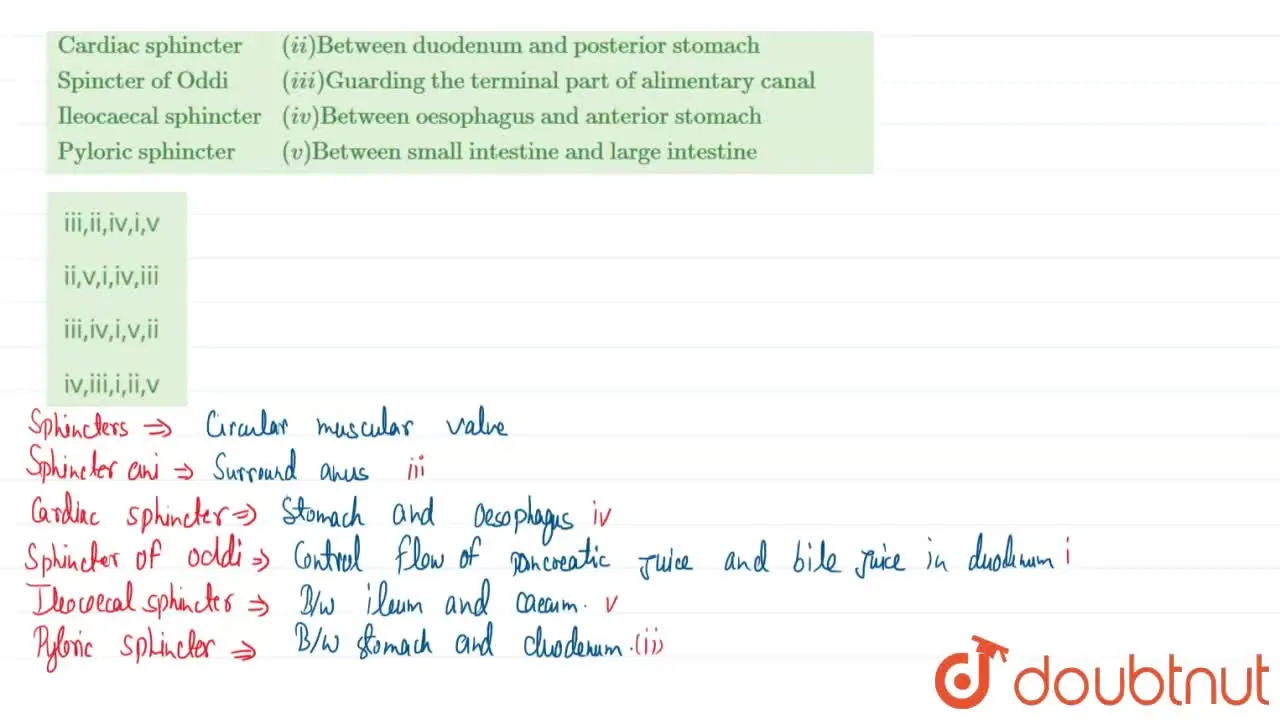 Cardiac sphincter (ii)Between duodenum and posterior stomach
Spincter of Oddi (iii)Guarding the terminal part of alimentary canal
Ileocaecal sphincter (iv)Between oesophagus and anterior stomach
Pyloric sphincter (v)Between small intestine and large intestine
iii,ii,iv,i,v
ii,v,i,iv,iii
iii,iv,i,v,ii
iv,iii,i,ii,v
Sphincters ⇒ Circular muscular valve
Sphincter ani ⇒ Surround anus iii
Cardiac sphincter ⇒ Stomach and Oesophagus iv
Sphincter of oddi ⇒ Control flow of pancreatic juice and bile juice in duodenum i
Ileocoecal sphincter ⇒ B/w ileum and caecum. v
Pyloric sphincter ⇒ B/w stomach and duodenum.(ii)
doubtnut